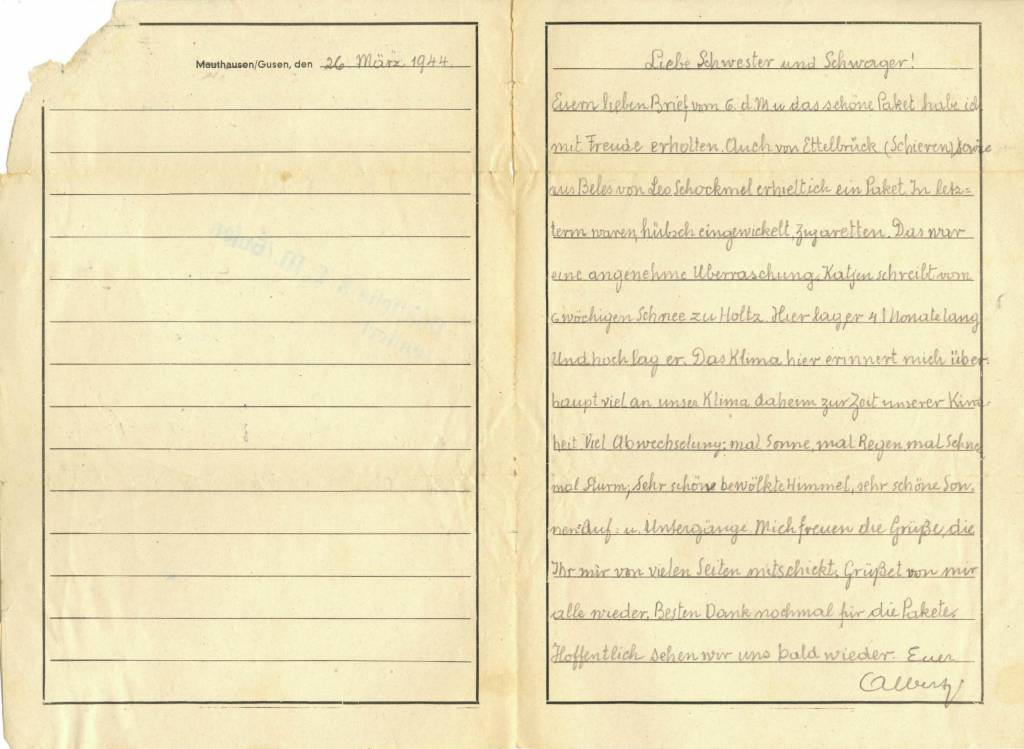 Mauthausen/Gusen, den 26. März 1944.
Liebe Schwester und Schwager!
Euern lieben Brief vom 6. d. M u das schöne Paket habe ich
mit Freude erhalten. Auch von Ettelbrück (Schieren) sowie
aus Beles von Leo Schockmel erhielt ich ein Paket. In letz=
term waren, hübsch eingewickelt, Zigaretten. Das war
eine angenehme Überraschung. schreibt vom
6 wöchigen Schnee zu Holtz. Hier lag er 4 Monate lang
Und hoch lag er. Das Klima hier erinnert mich über-
haupt viel an unser Klima daheim zur Zeit unserer Kind-
heit. Viel Abwechselung: mal Sonne, mal Regen, mal Schnee
mal Sturm; Sehr schöne bewölkte Himmel, sehr schöne Son-
nen=Auf= u. Untergänge. Mich freuen die Grüße, die
Ihr mir von vielen Seiten mitschickt. Grüßet von mir
alle wieder. Besten Dank nochmal für die Pakete.
Hoffentlich sehen wir uns bald wieder. Euer
Albert